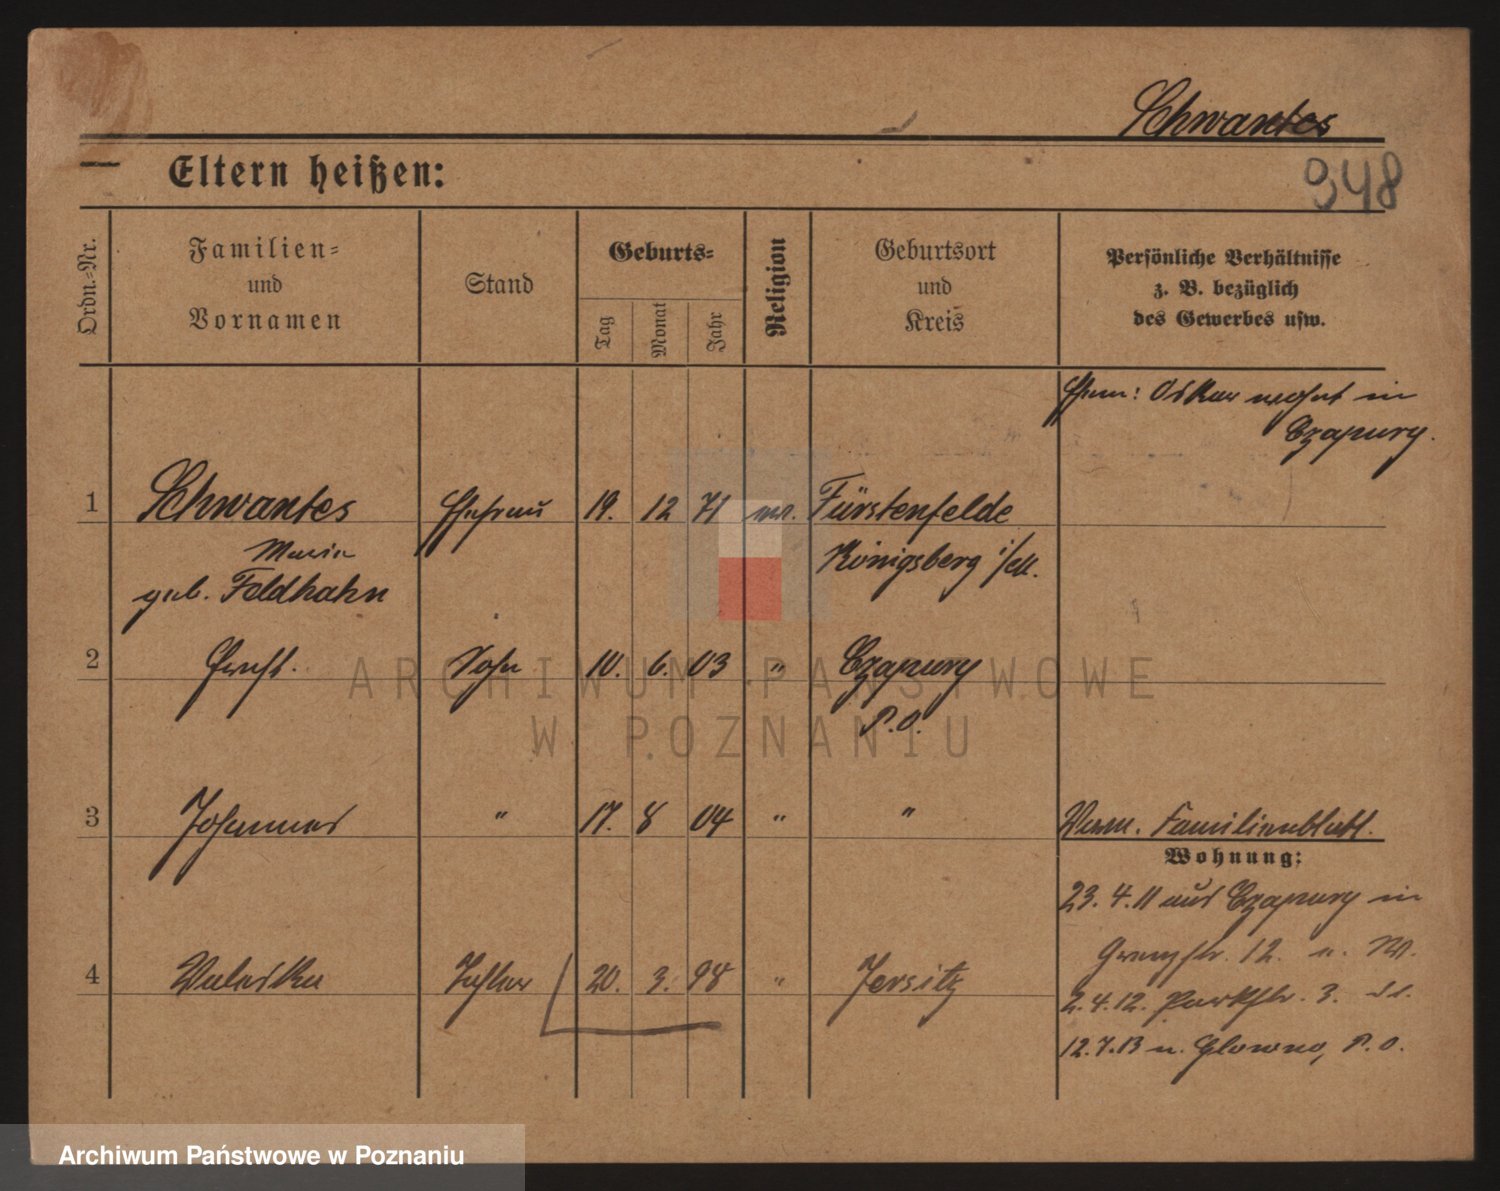 Schwantes
Eltern heißen:
948
Ordn.=Nr.
Familien=
und
Vornamen
Stand
Geburts=
Tag
Monat
Jahr
Religion
Geburtsort
und
Kreis
Persönliche Verhältnisse
z. B. bezüglich
des Gewerbes usw.
Ehem: Oskar wohnt in
Czapury.
1 Schwantes Ehefrau 19. 12 71 Fürstenfelde
Maria Königsberg i/M.
geb. Feldhahn
2 Sohn 10. 6. 03 " Czapury
P.O.
3 Johannes " 17. 8 04 " " Familienblatt.
Wohnung:
23. 4. 11 aus Czapury in
12. n. W.
4 Valeska Tochter 20. 3. 98 " Jersitz
2. 4. 12. Parkstr. 3.
12. 7. 13 n. Glowno, P. O.
ARCHIWUM PAŃSTWOWE
W POZNANIU
Archiwum Państwowe w Poznaniu